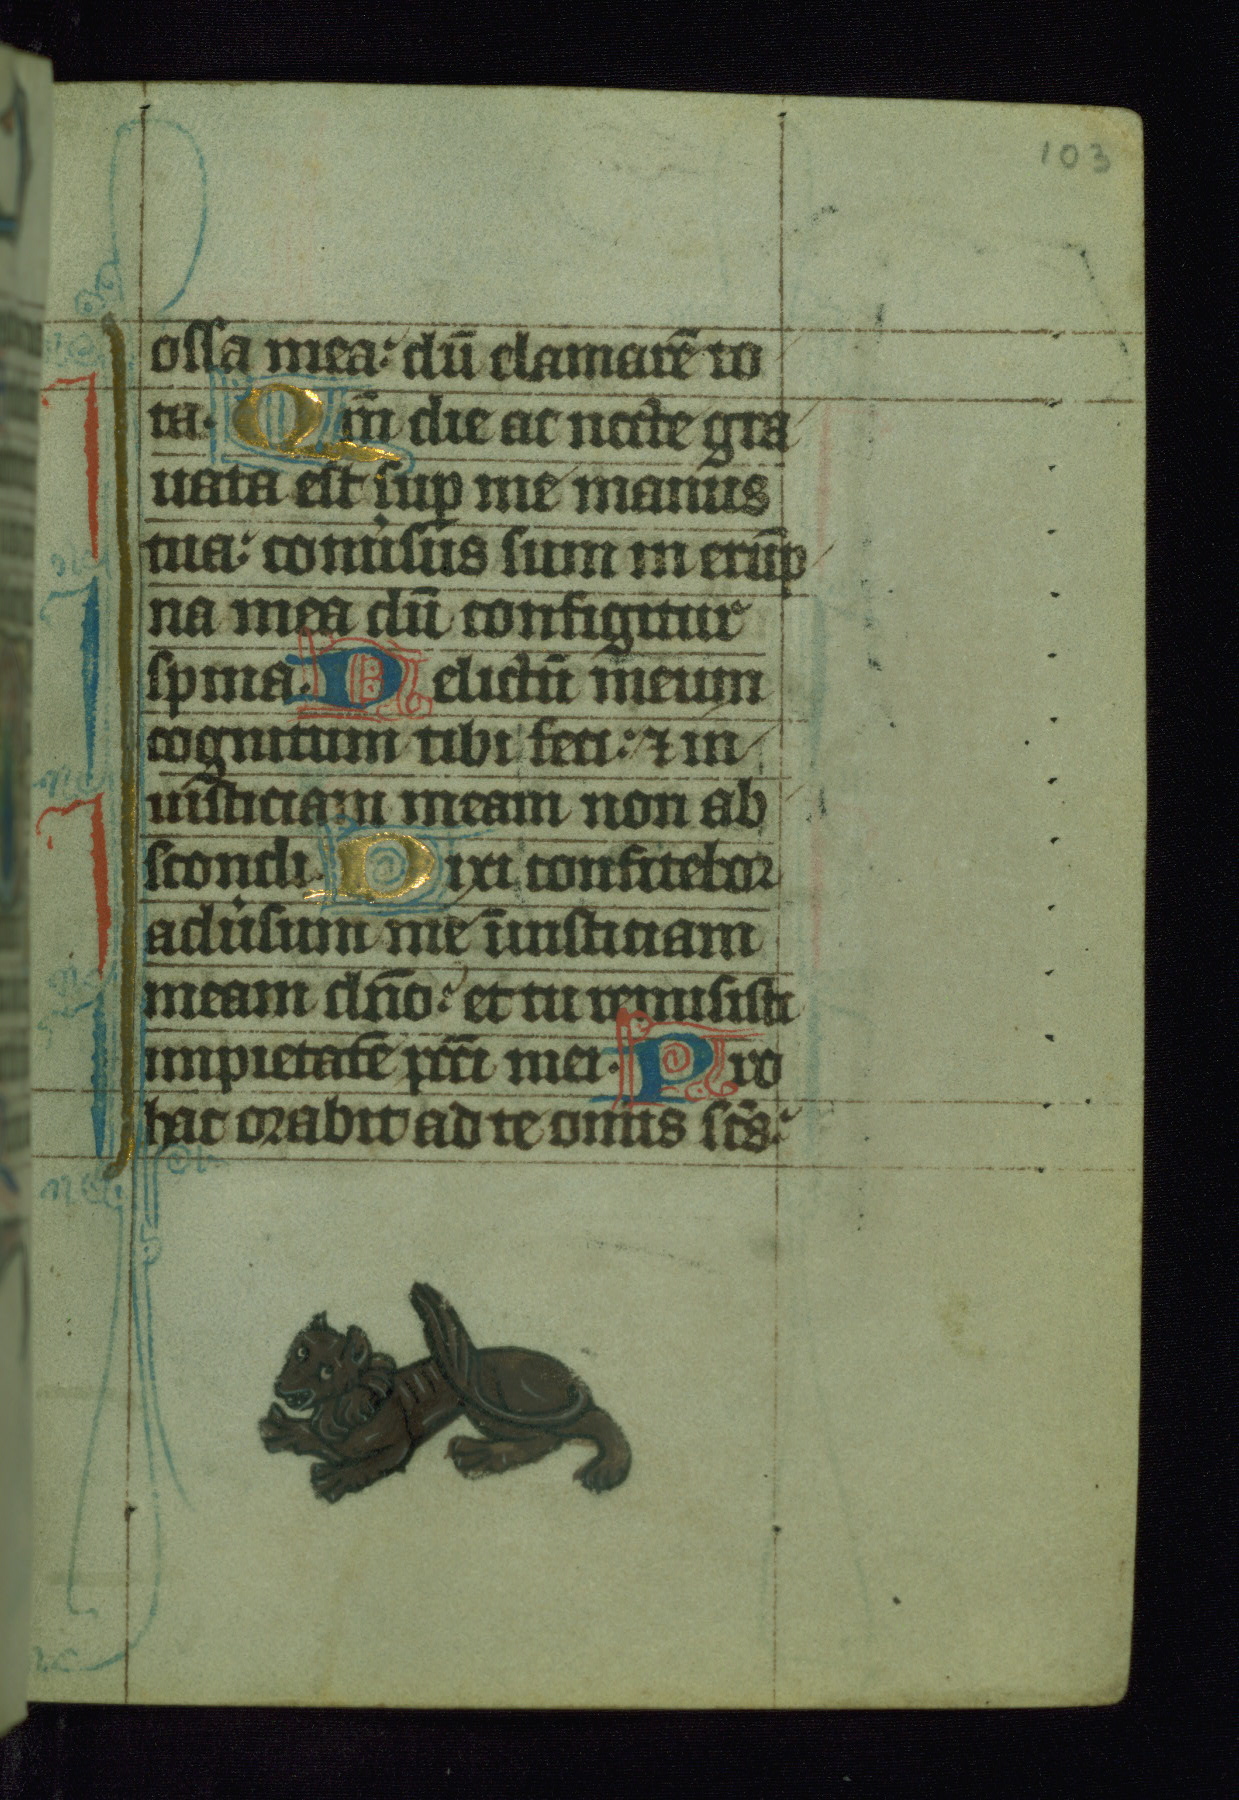 103
ossa mea: dū clamarē to
ta. Qm̄ die ac nocte gra
uata est sup me manus
tua: conuisus sum in erūp
na mea dū configitur
spina. Delictū meum
cognitum tibi feci: ⁊ in
iusticiam meam non ab
scondi. Dixi confitebor
aduisum me īiusticiam
meam dn̄o: et tu remisisti
impietatē pcc̄i mei. Pro
hac orabit ad te omīs scs̄: